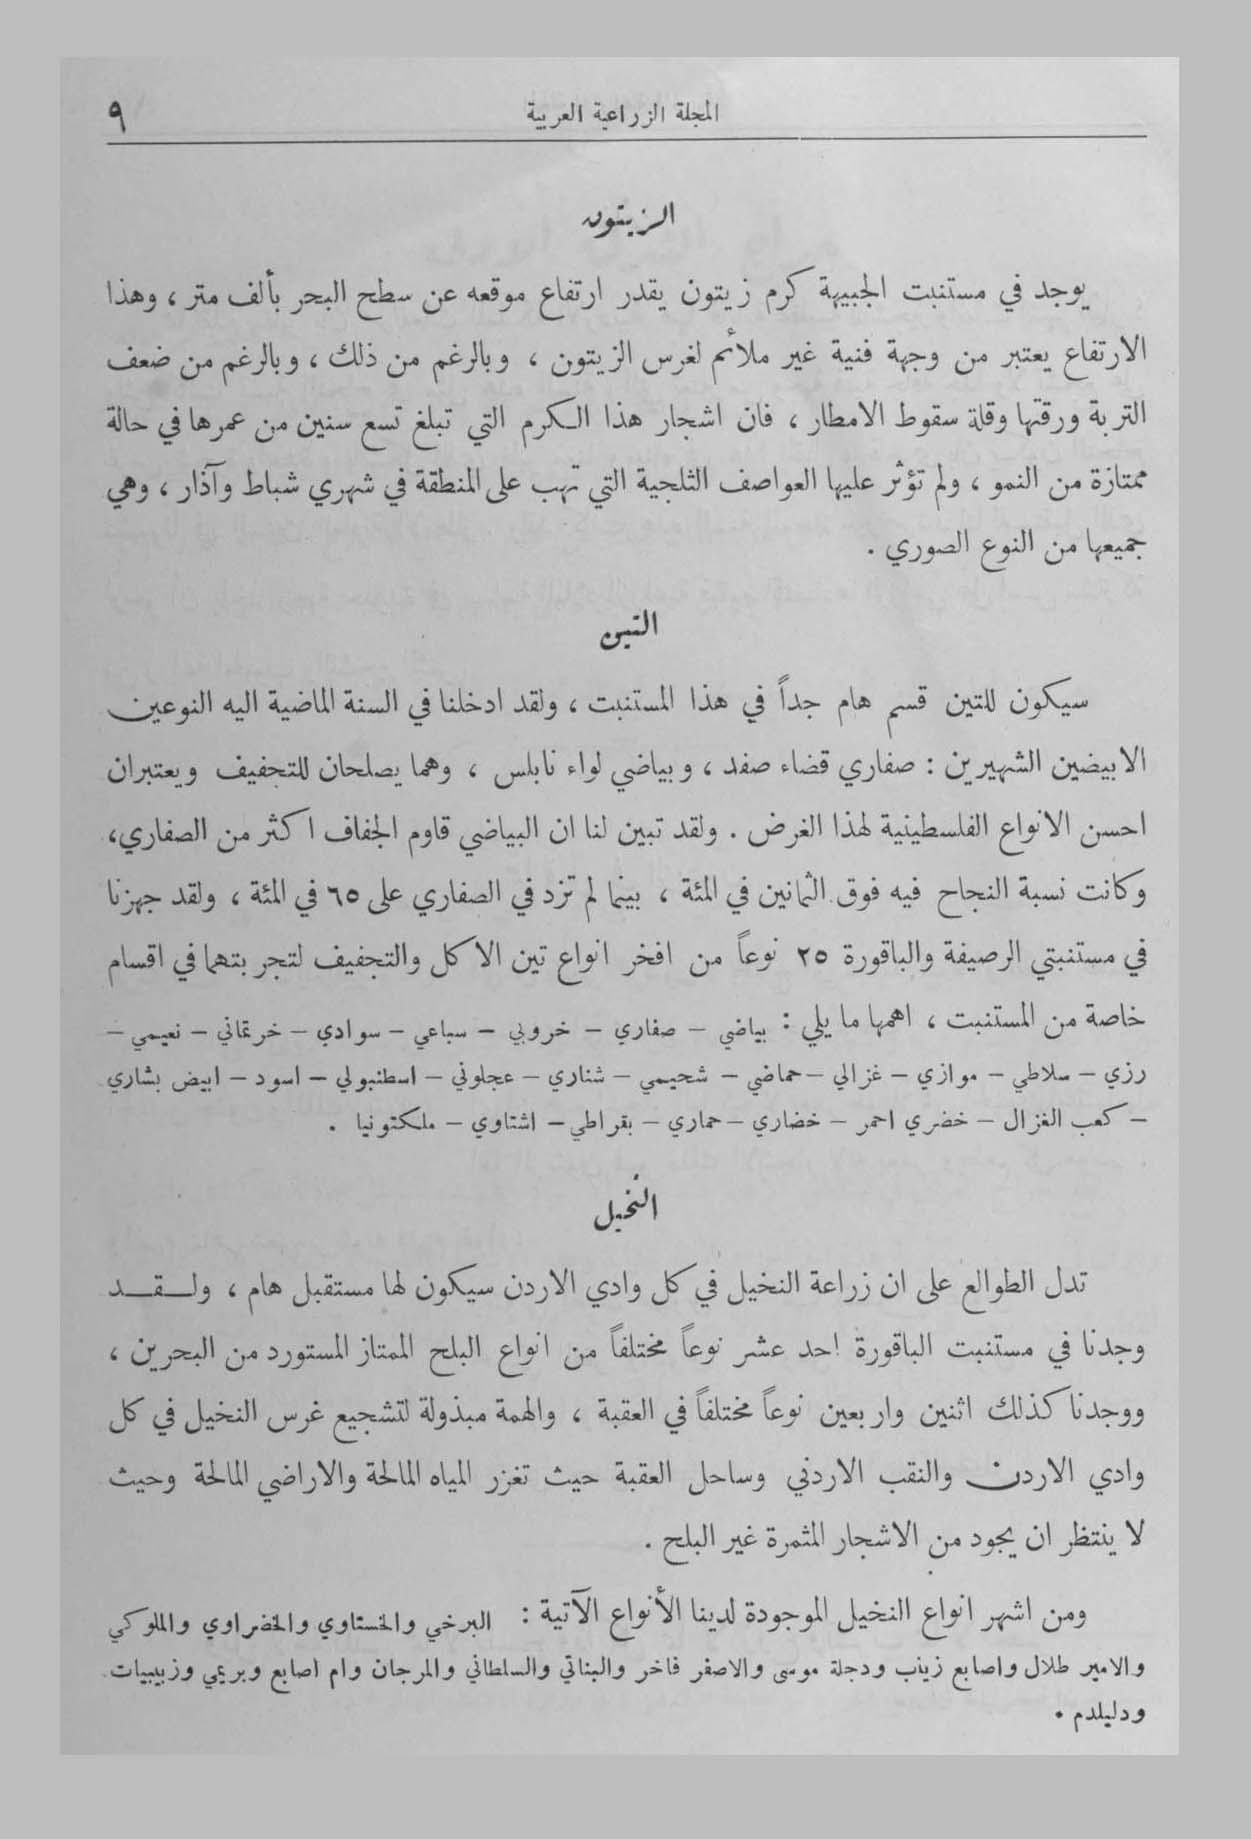 المجلة الزراعية العربية
٩
الزيتون
يوجد في مستنبت الجبيهة كرم زيتون يقدر ارتفاع موقعه عن سطح البحر بألف متر ، وهذا
الارتفاع يعتبر من وجهة فنية غير ملائم لغرس الزيتون ، وبالرغم من ذلك ، وبالرغم من ضعف
التربة ورقتها وقلة سقوط الامطار ، فان اشجار هذا الكرم التي تبلغ تسع سنين من عمرها في حالة
ممتازة من النمو ، ولم تؤثر عليها العواصف الثلجية التي تهب على المنطقة في شهري شباط وآذار ، وهي
جميعها من النوع الصوري .
التين
سيكون للتين قسم هام جداً في هذا المستنبت ، ولقد ادخلنا في السنة الماضية اليه النوعين
الابيضين الشهيرين : صفاري قضاء صفد ، وبياضي لواء نابلس ، وهما يصلحان للتجفيف ويعتبران
احسن الانواع الفلسطينية لهذا الغرض . ولقد تبين لنا ان البياضي قاوم الجفاف اكثر من الصفاري،
وكانت نسبة النجاح فيه فوق الثمانين في المئة ، بينما لم تزد في الصفاري على ٦٥ في المئة ، ولقد جهزنا
في مستنبتي الرصيفة والباقورة ٢٥ نوعاً من افخر انواع تين الاكل والتجفيف لتجربتهما في اقسام
خاصة من المستنبت ، اهمها ما يلي : بياضي – صفاري – خروبي – سباعي – سوادي – خرتماني – نعيمي –
رزي – سلاطي – موازي – غزالي – حماضي – شحيمي – شناري – عجلوني – اسطنبولي – اسود – ابيض بشاري
– كعب الغزال – خضري احمر – خضاري – حماري – بقراطي – اشتاوي – ملكتونيا .
النخيل
تدل الطوالع على ان زراعة النخيل في كل وادي الاردن سيكون لها مستقبل هام ، ولقد
وجدنا في مستنبت الباقورة احد عشر نوعاً مختلفاً من انواع البلح الممتاز المستورد من البحرين ،
ووجدنا كذلك اثنين واربعين نوعاً مختلفاً في العقبة ، والهمة مبذولة لتشجيع غرس النخيل في كل
وادي الاردن والنقب الاردني وساحل العقبة حيث تغزر المياه المالحة والاراضي المالحة وحيث
لا ينتظر ان يجود من الاشجار المثمرة غير البلح .
ومن اشهر انواع النخيل الموجودة لدينا الأنواع الآتية : البرخي والخستاوي والخضراوي والملوكي
والامير طلال واصابع زينب ودجلة موسى والاصفر فاخر والبناتي والسلطاني والمرجان وام اصابع وبريمي وزبيبيات
ودليلدم .